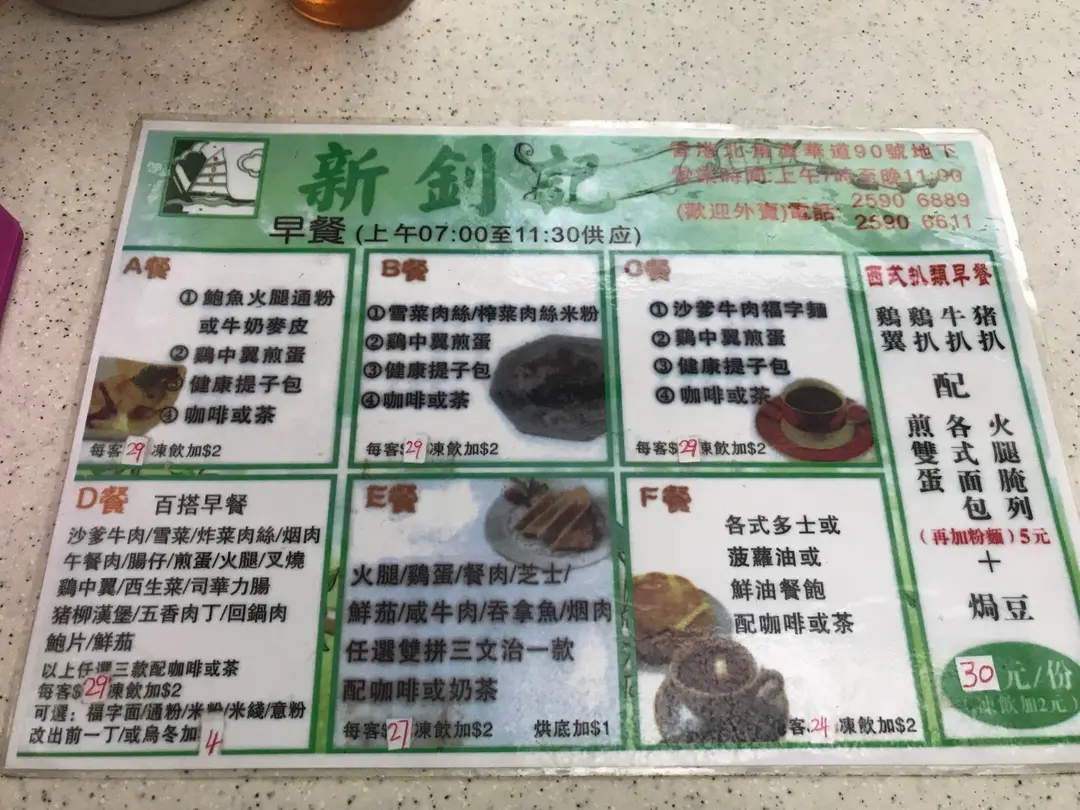 新釗記
香港北角渣華道90號地下
營業時間:上午7時至晚11:00
(歡迎外賣)電話: 2590 6889
2590 6611
早餐 (上午07:00至11:30供应)
A餐
①鮑魚火腿通粉
或牛奶麥皮
②鷄中翼煎蛋
③健康提子包
④咖啡或茶
每客$29凍飲加$2
B餐
①雪菜肉絲/榨菜肉絲米粉
②鷄中翼煎蛋
③健康提子包
④咖啡或茶
每客$29凍飲加$2
C餐
①沙爹牛肉福字麵
②鷄中翼煎蛋
③健康提子包
④咖啡或茶
每客$29凍飲加$2
D餐 百搭早餐
沙爹牛肉/雪菜/炸菜肉絲/烟肉
午餐肉/腸仔/煎蛋/火腿/叉燒
鷄中翼/西生菜/司華力腸
猪柳漢堡/五香肉丁/回鍋肉
鮑片/鮮茄
以上任選三款配咖啡或茶
每客$29凍飲加$2
可選：福字面/通粉/米粉/米綫/意粉
改出前一丁/或烏冬加4
E餐
火腿/鷄蛋/餐肉/芝士/
鮮茄/咸牛肉/吞拿魚/烟肉
任選雙拼三文治一款
配咖啡或奶茶
每客$27凍飲加$2 烘底加$1
F餐
各式多士或
菠蘿油或
鮮油餐飽
配咖啡或茶
客24 凍飲加$2
西式扒類早餐
猪扒
牛扒
鷄扒
鷄翼
配
火腿腌列
各式面包
煎雙蛋
(再加粉麵)5元
+
焗豆
30元/份
(凍飲加2元)